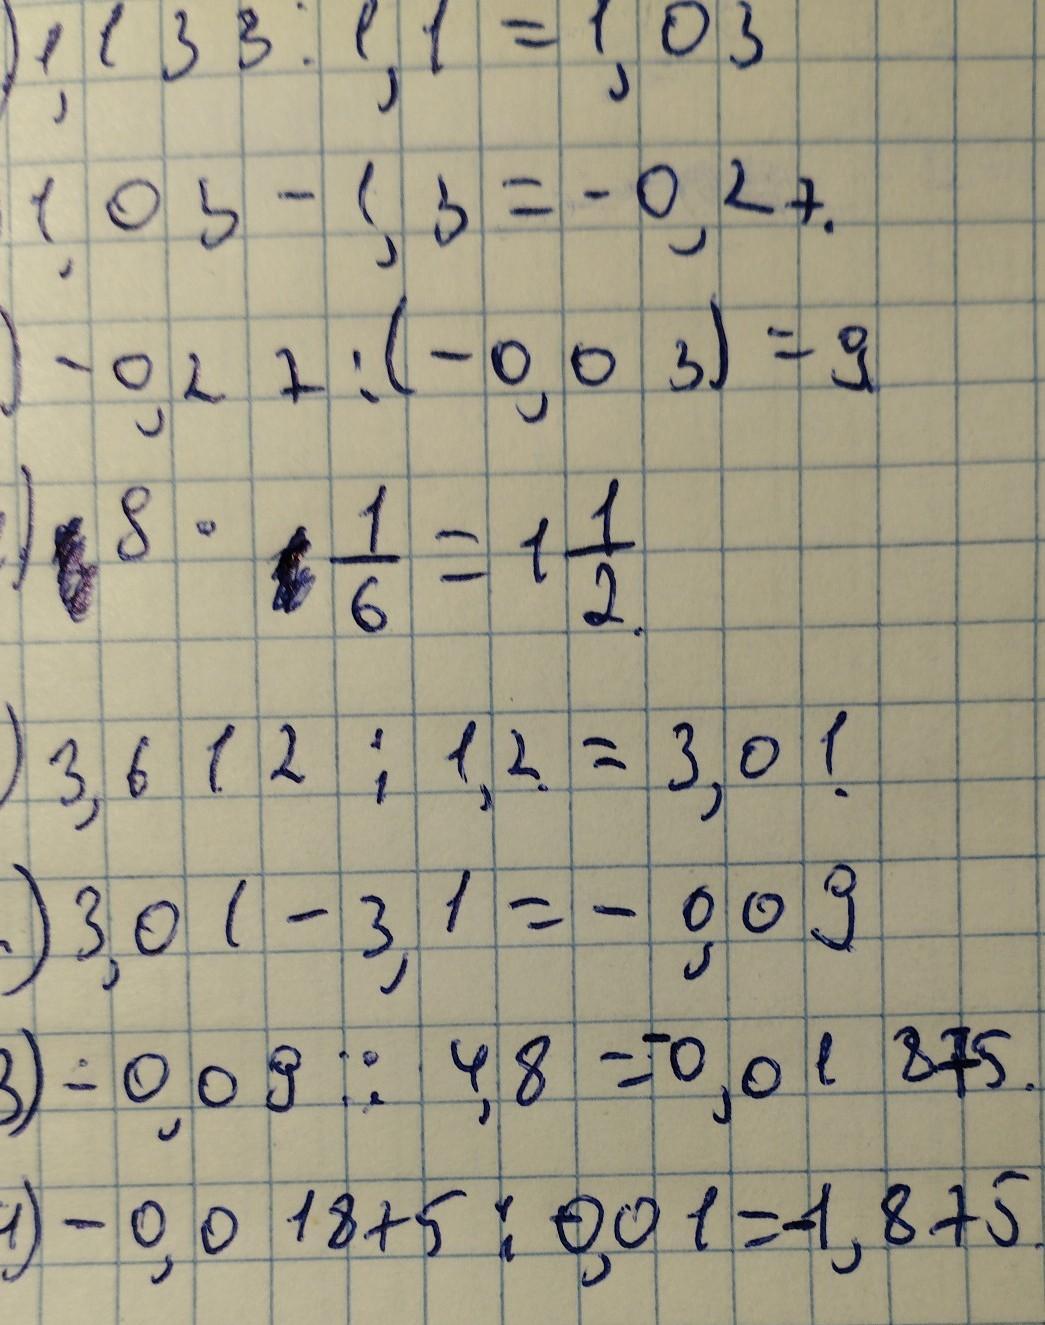 ) 1,133 : 1,1 = 1,03
1,03 - 1,3 = - 0,27.
) - 0,27 : (- 0,03) = 9
) 9 · 1/6 = 1 1/2.
) 3,612 : 1,2 = 3,01.
) 3,01 - 3,1 = - 0,09
3) - 0,09 : 4,8 = -0,01875.
4) - 0,01875 : 0,01 = -1,875.